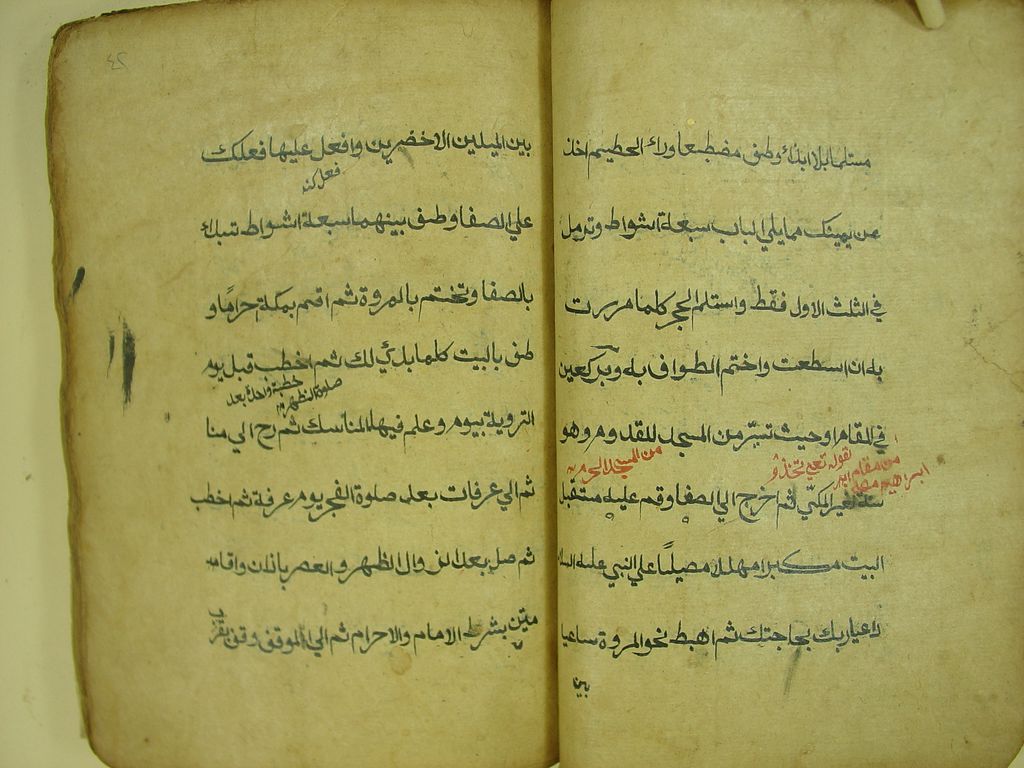 مستلما بلا ايذاء وطف مضطبعا وراء الحطيم اخذ
عن يمينك مما يلي الباب سبعة اشواط وترمل
في الثلث الاول فقط واستلم الحجر كلما مررت
به ان اسطعت واختم الطواف به وبركعتين
في المقام او حيث تيسر من المسجد للقدوم وهو
من المسجد الحرام
لقوله تعالى واتخذوا من مقام ابراهيم مصلى
سنة لغير المكي ثم اخرج الي الصفا وقم عليه مستقبل
البيت مكبرا مهللا مصليا علي النبي عليه السلام
داعيا ربك بحاجتك ثم اهبط نحو المروة ساعيا
بين
٤٢
بين الميلين الاخضرين وافعل عليها فعلك
فعلك
علي الصفا وطف بينهما سبعة اشواط تبداء
بالصفا وتختم بالمروة ثم اقم بمكة حرامًا و
طف بالبيت كلما بدي لك ثم اخطب قبل يوم
خطبة واحدة بعد صلوة الظهر
التروية بيوم وعلم فيها المناسك ثم رح الي منا
ثم الي عرفات بعد صلوة الفجر يوم عرفة ثم اخطب
ثم صل بعد الزوال الظهر والعصر باذان واقامـ
متين بشرط الامام والاحرام ثم الي الموقف وقف بقرب